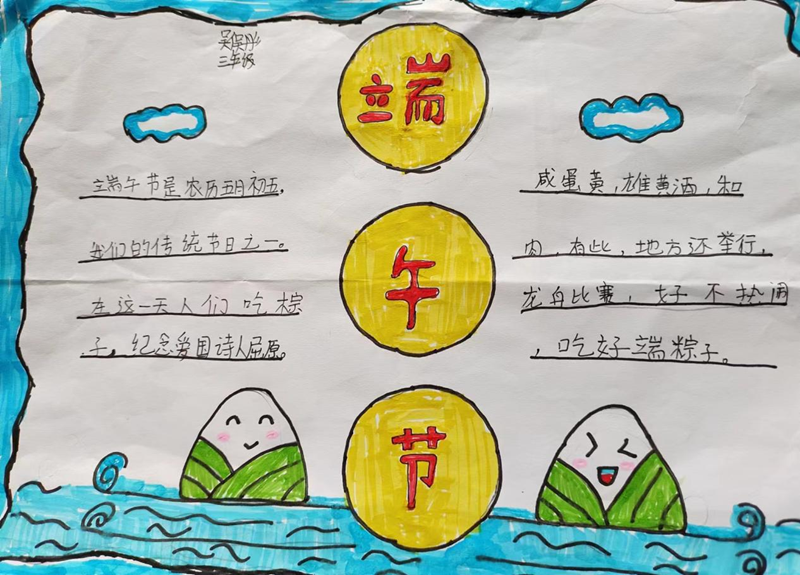 三年级
端
午
节
端午节是农历五月初五，
我们的传统节日之一。
在这一天人们吃棕
子，纪念爱国诗人屈原。
咸蛋黄，雄黄酒，和
肉，有些，地方还举行，
龙舟比赛，好不热闹
，吃好端粽子。